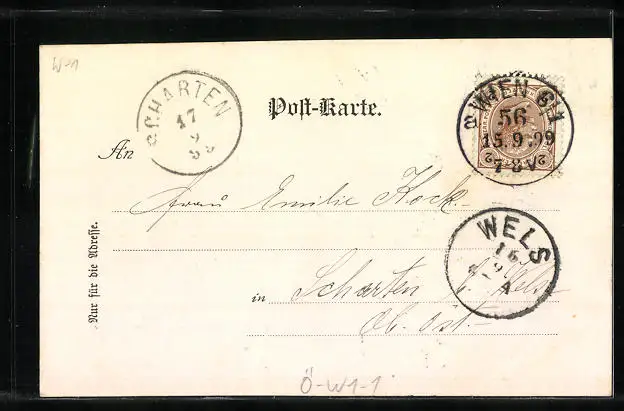 W-1
SCHARTEN
17
9
99
Post-Karte.
WIEN 6/1
56
15.9.99
7-8V
2 2
An
Frau Emilie Kock.
WELS
16
9
A
in Scharten b. Wels
Ob. Öst.
Nur für die Adresse.
Ö-W1-1